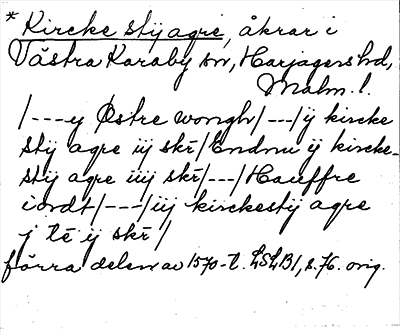 * Kircke stij agre, åkrar i
Västra Karaby sn, Harjagers hd,
Malm. l.
/---y Østre wongh/---/ij kircke
stij agre iij skr/Endnu ij kircke-
stij agre iiij skr/---/Hauffre
iordt/---/iij kirckestij agre
j te ij skr/
förra delen av 1570-t. LSLB1, s. 76. orig.